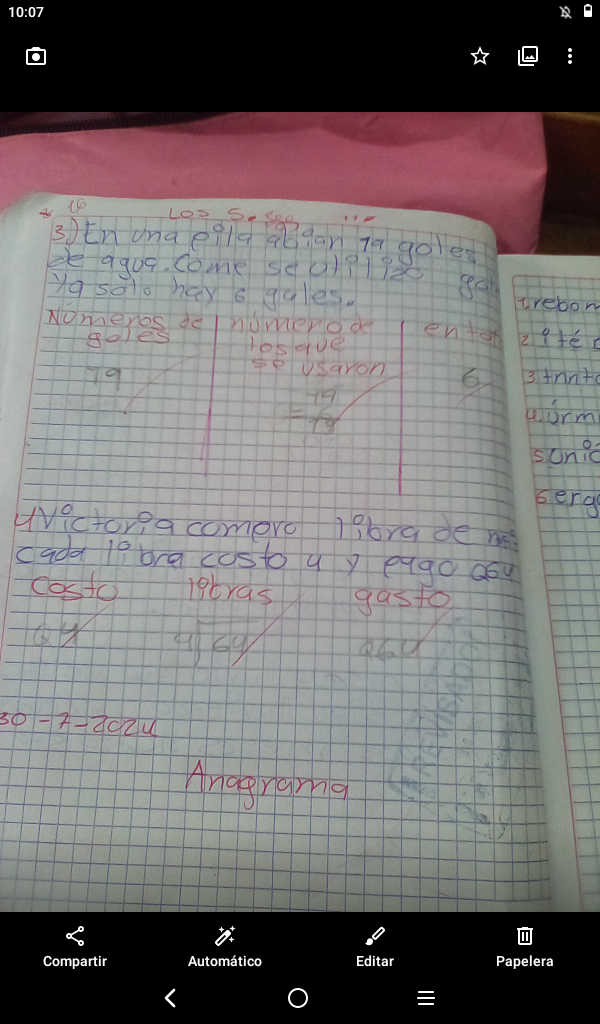 10:07
16
Los S.
3) En una pila abían 79 goles
de agua. Come se utilizo gal
Ya solo hay 6 gales.
Números de goles
número de los que se usaron
en tot
79
79
= 6
73
6
4 Victoria compro libra de
cada libra costo 4 y pago Q64
costo libras gasto
64
4 64
Q64
30-7-2024
Anagrama
1 rebom
2
3
4 urmi
5 unic
6 ergo
Compartir
Automático
Editar
Papelera